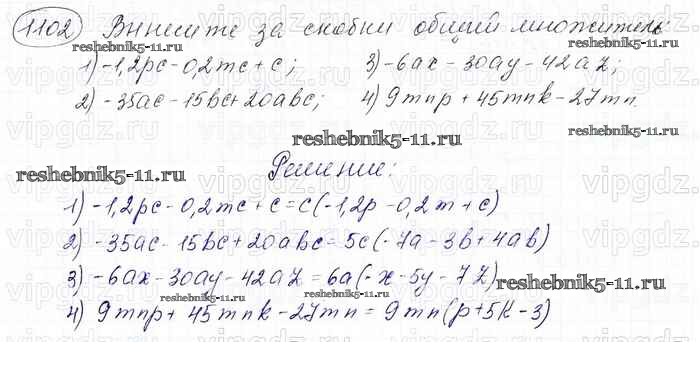 1102 Вынесите за скобки общий множитель:
reshebnik5-11.ru reshebnik5-11.ru
1) -1,2pc - 0,2mc + c; 3) -6ax - 30ay - 42az;
2) -35ac - 15bc + 20abc; 4) 9mnp + 45mnk - 27mn.
reshebnik5-11.ru reshebnik5-11.ru
Решение:
reshebnik5-11.ru
1) -1,2pc - 0,2mc + c = c(-1,2p - 0,2m + c)
2) -35ac - 15bc + 20abc = 5c(-7a - 3b + 4ab)
3) -6ax - 30ay - 42az = 6a(-x - 5y - 7z)
reshebnik5-11.ru reshebnik5-11.ru reshebnik5-11.ru
4) 9mnp + 45mnk - 27mn = 9mn(p + 5k - 3)